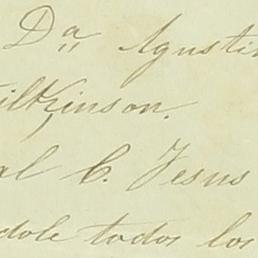 Da Agustin
ilkinson.
al C. Jesus
dole todos los